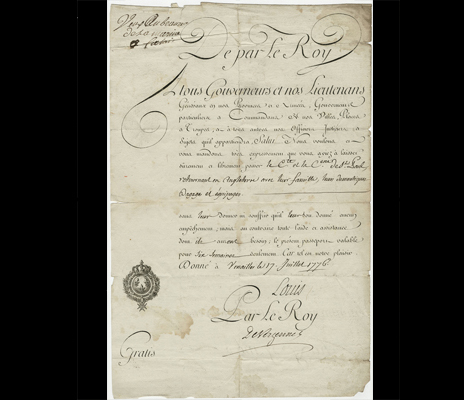 De par Le Roy
A tous Gouverneurs et nos Lieutenans
Généraux en nos Provinces et Armées, Gouverneurs
particuliers et Commandans de nos Villes, Places
et Troupes, et à tous autres nos Officiers Justiciers et
Sujets qu'il appartiendra Salut. Nous voulons et
vous mandons très expressément que vous ayez à laisser
librement passer le Cte. et la Ctesse
retournant en Angleterre avec leur famille, leurs domestiques
Bagage et équipages
sans leur donner ni souffrir qu'il leur soit donné aucun
empêchement; mais au contraire toute l'aide et assistance
dont ils auront besoin; le présent passeport valable
pour six semaines seulement. Car tel est notre plaisir
Donné à Versailles le 17 Juillet 1776
Louis
Par Le Roy
De Vergennes
Gratis